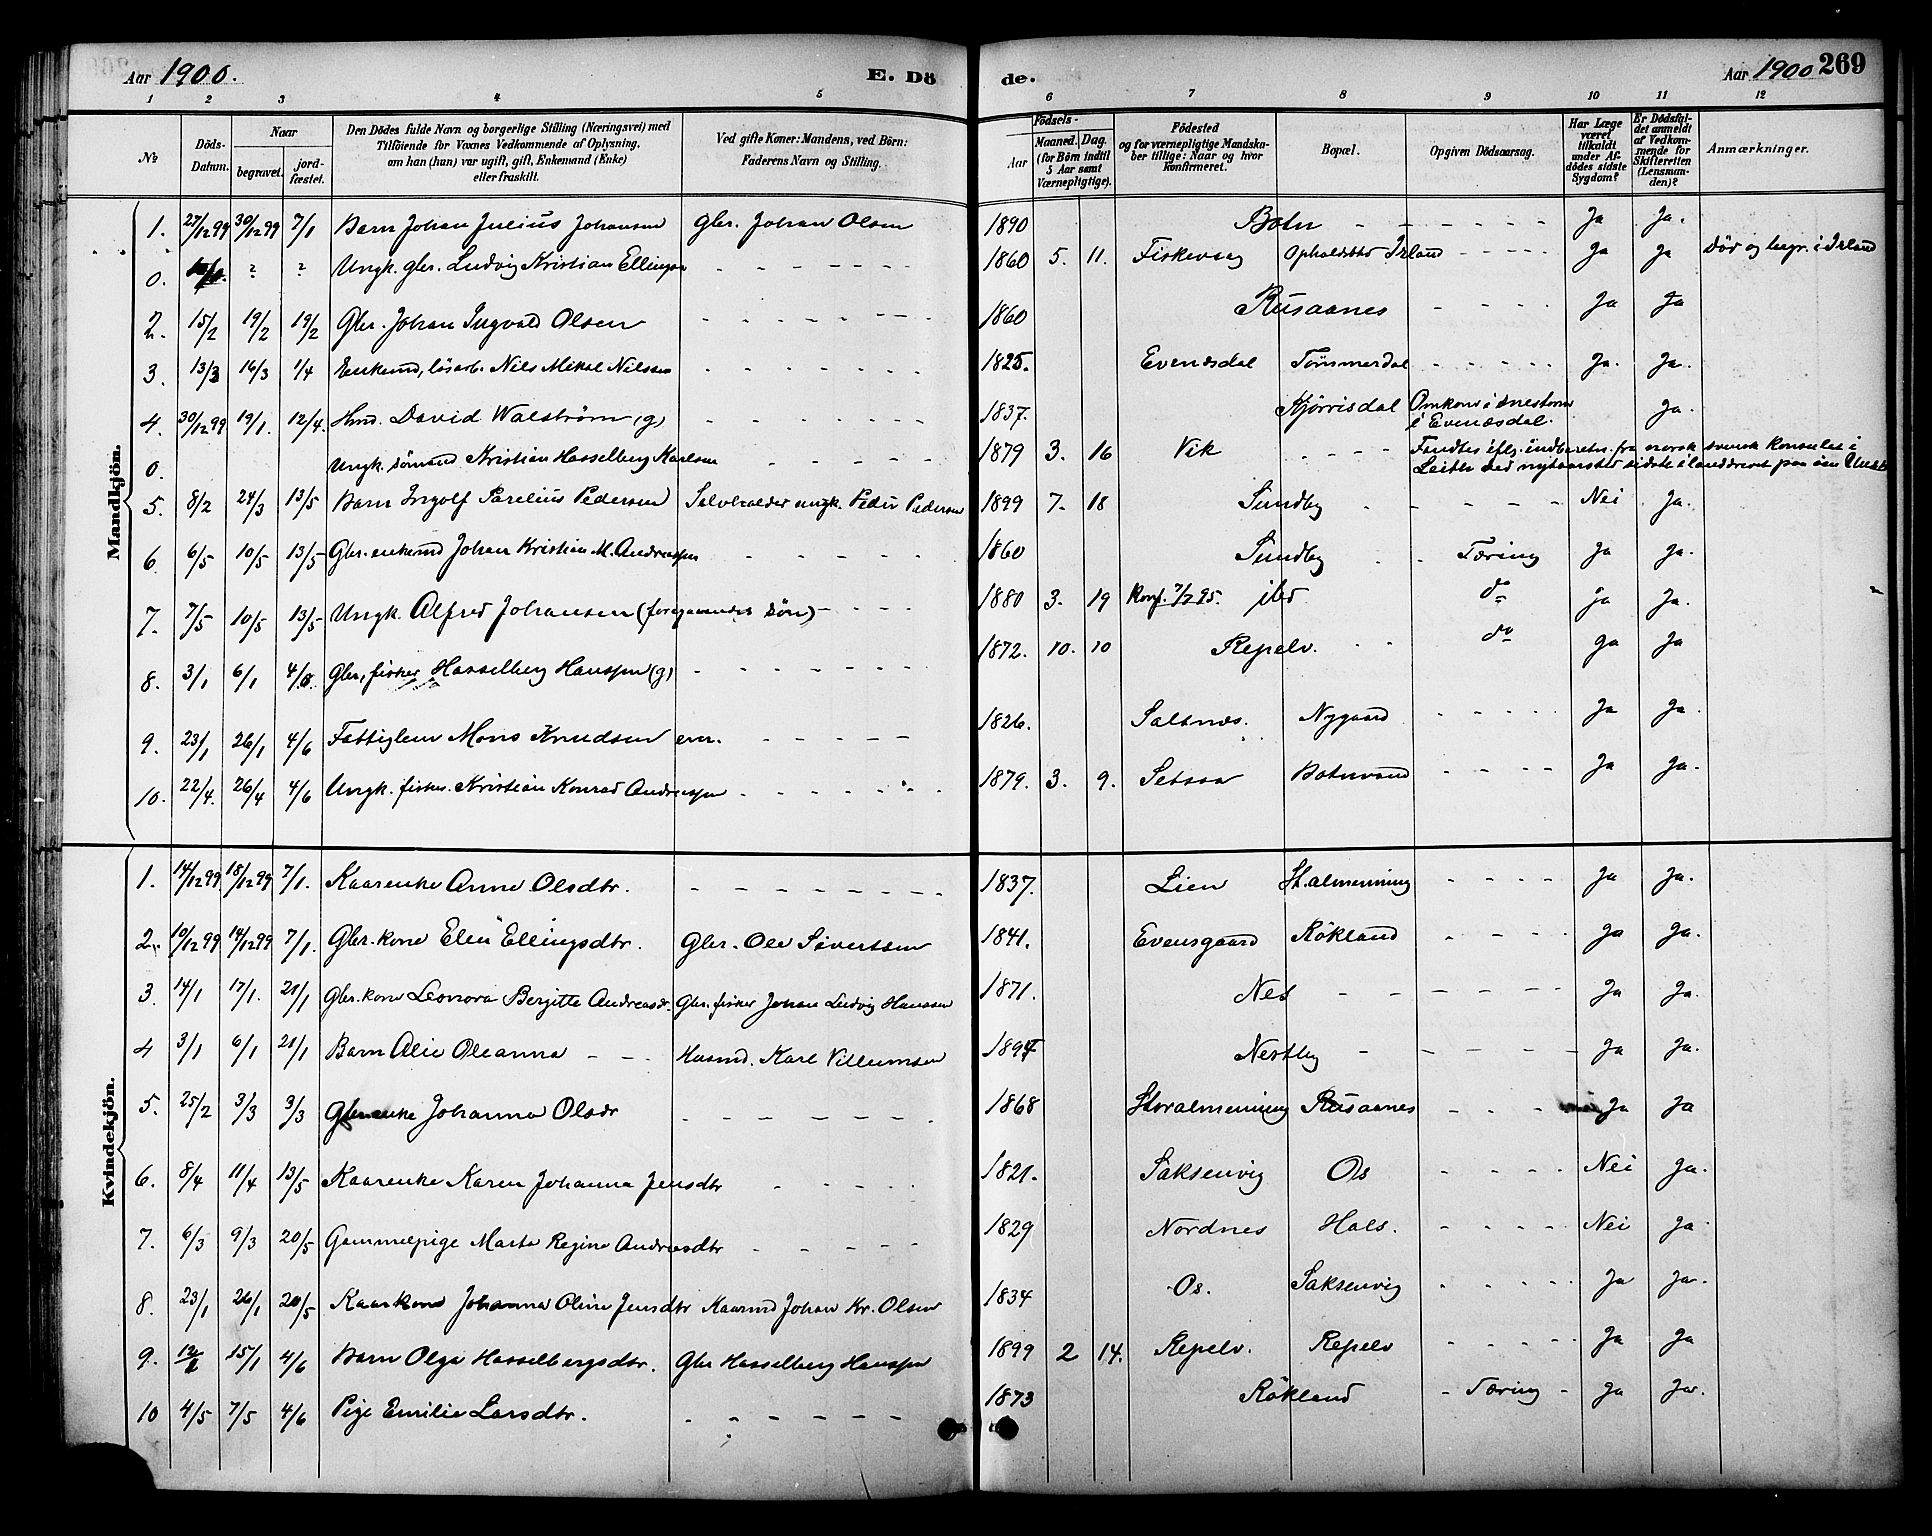 Aar 1900. E. Dö de. Aar 1900 269
1 2 3 4 5 6 7 8 9 10 11 12
№ Döds-Datum. Naar begravet. jord-fæstet. Den Dödes fulde Navn og borgerlige Stilling (Næringsvei) med Tilföiende for Voxnes Vedkommende af Oplysning, om han (hun) var ugift, gift, Enkemand (Enke) eller fraskilt. Ved gifte Koner: Mandens, ved Börn: Faderens Navn og Stilling. Födsels- Aar Maaned. Dag. (for Börn indtil 5 Aar samt Værnepligtige). Födested og for værnepligtige Mandska-ber tillige: Naar og hvor konfirmeret. Bopæl. Opgiven Dödsaarsag. Har Læge været tilkaldt under Af-dödes sidste Sygdom? Er Dödsfal-det anmeldt af Vedkom-mende for Skifteretten (Lensman-den)? Anmærkninger.
Mandkjön.
1. 27/12 99 30/12 99 7/1 Barn Johan Julius Johansen Gbr. Johan Olsen 1890 Botn Ja Ja.
0. ? ? Ungk. gbr. Ludvig Kristian Ellingsen 1860 5. 11. Fiskevaag Opholdssted Irland Ja Ja Död og begr. i Irland
2. 15/2 19/2 19/2 Gbr. Johan Ingvald Olsen 1860 Rusaanes Ja Ja
3. 13/3 16/3 1/4 Enkemd, lösarb. Nils Mikal Nilssen 1825. Evensdal Tömmerdal Ja. Ja.
4. 30/12 99 19/1. 12/4. Hmd. David Walström (g) 1837. Kjörrisdal Omkom i snestorm i Evensdal. Ja.
0. Ungk. sömand Kristian Hasselberg Karlsen 1879 3. 16 Vik Fandtes ifls. indberetn. fra norsk svensk konsulat i Leith ved nytaarstid sidste ilanddrevet paa öen
5. 8/2 24/3 13/5 Barn Ingolf Parelius Pedersen Selveholder ungk. Peder Pedersen 1899 7. 18 Sundby Nei Ja.
6. 6/5 10/5 13/5 Gbr. enkemd Johan Kristian M. Andreassen 1860 Sundby Tæring Ja Ja.
7. 7/5 10/5 13/5 Ungk. Alfred Johansen (foregaaendes sön) 1880 3. 19 Konf. 7/7 95. ibd do Ja Ja.
8. 3/1 6/1 Gbr, fisker Hasselberg Hanssen (g) 1872. 10. 10 Repelv. do Ja Ja
9. 23/1 26/1 4/6 Fattiglem Mons Knudsen em. 1826. Saltnes. Nygaard Ja Ja.
10. 22/4. 26/4 4/6 Ungk. fisker. Kristian Konrad Andreassen 1879. 3. 9. Setsaa Botnvand Ja Ja.
Kvindekjön.
1. 14/12 99 18/12 99 7/1. Kaarenke Anne Olsdtr. 1837. Lien St.almenning Ja Ja.
2. 10/12 99 14/12 99 7/1. Gbr. kone Elen Ellingsdtr. Gbr. Ole Sivertsen 1841. Evensgaard Rökland Ja Ja.
3. 14/1 17/1. 21/1 Gbr. kone Leonora Bergitte Andreasdr. Gbr. fisker Johan Ludvig Hanssen 1871. Nes Ja Ja.
4 3/1 6/1 21/1 Barn Alie Oleanna Husmd. Karl Villumsen 1894 Nestby Ja Ja.
5. 25/2 3/3 3/3 Gbr enke Johanna Olsdr 1868 Storalmenning Rusaanes Ja Ja
6. 8/4 11/4 13/5 Kaarenke Karen Johanna Jensdtr 1821. Saksenvig Os Nei Ja.
7. 6/3 9/3 20/5 Gammelpige Marta Regine Andreasdtr 1829 Nordnes Hals. Nei Ja.
8. 23/1 26/1 20/5 Kaarkone Johanna Oline Jensdtr Kaarmd Johan Kr. Olsen 1834 Os. Saksenvig Ja Ja.
9. 15/1 4/6 Barn Olga Hasselbergsdtr. Gbr Hasselberg Hanssen 1899 2 14. Repelv. Repelv Ja Ja
10 4/5 7/5 4/6 Pige Emilie Larsdtr. 1873 Rökland Tæring Ja Ja.